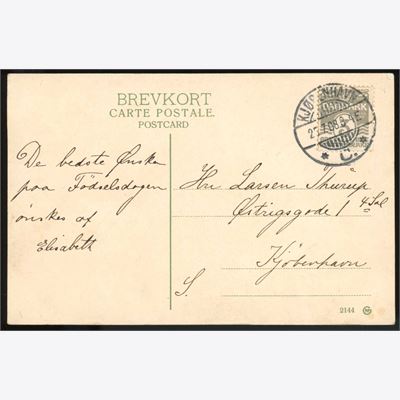 BREVKORT
CARTE POSTALE.
POSTCARD
KJØBENHAVN
DANMARK
C.
De bedste Ønsker
paa Fødselsdagen
ønskes af
Elisabeth
Hr Larsen Thurup
Østrigsgade 1 4 Sal
Kjøbenhavn
S.
2144